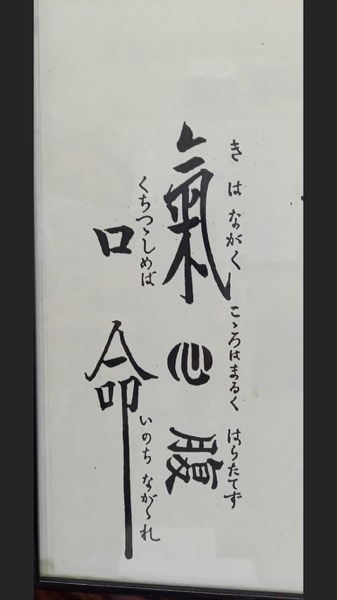 きはながく こゝろはまるく はらたてず
氣心腹
くちつゝしめば いのちながゝれ
口命